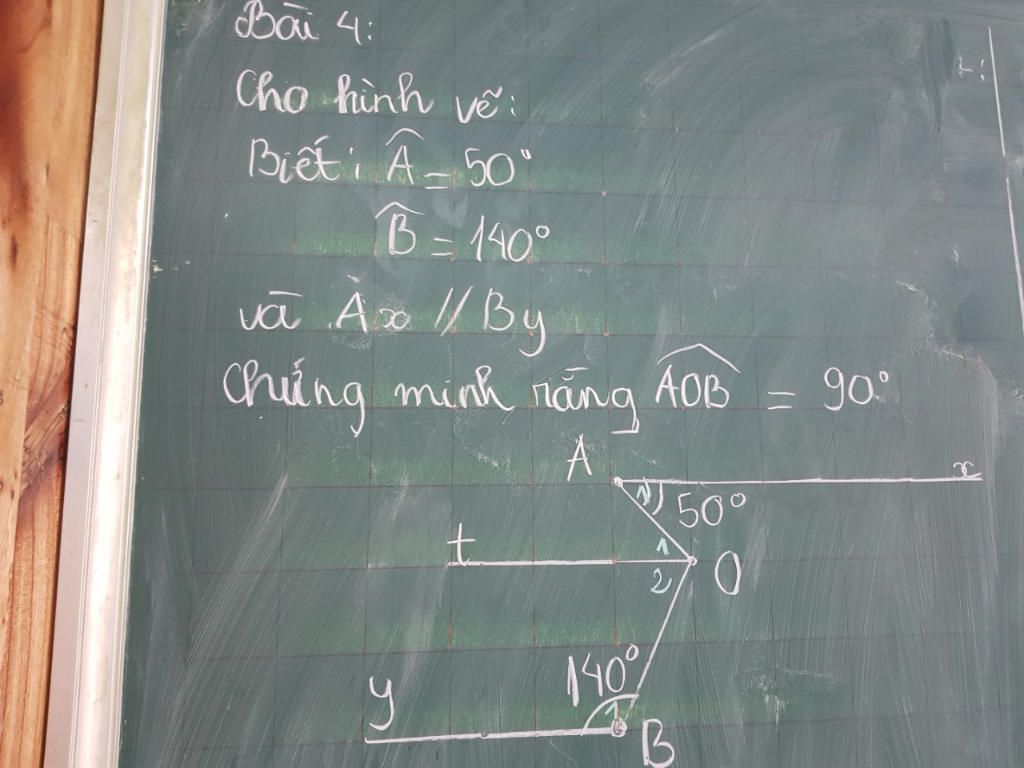 Bài 4:
Cho hình vẽ:
Biết: Â = 50°
B̂ = 140°
và Ax // By
Chứng minh rằng AOB̂ = 90°
A
x
1
50°
t
1
O
2
140°
y
1
B